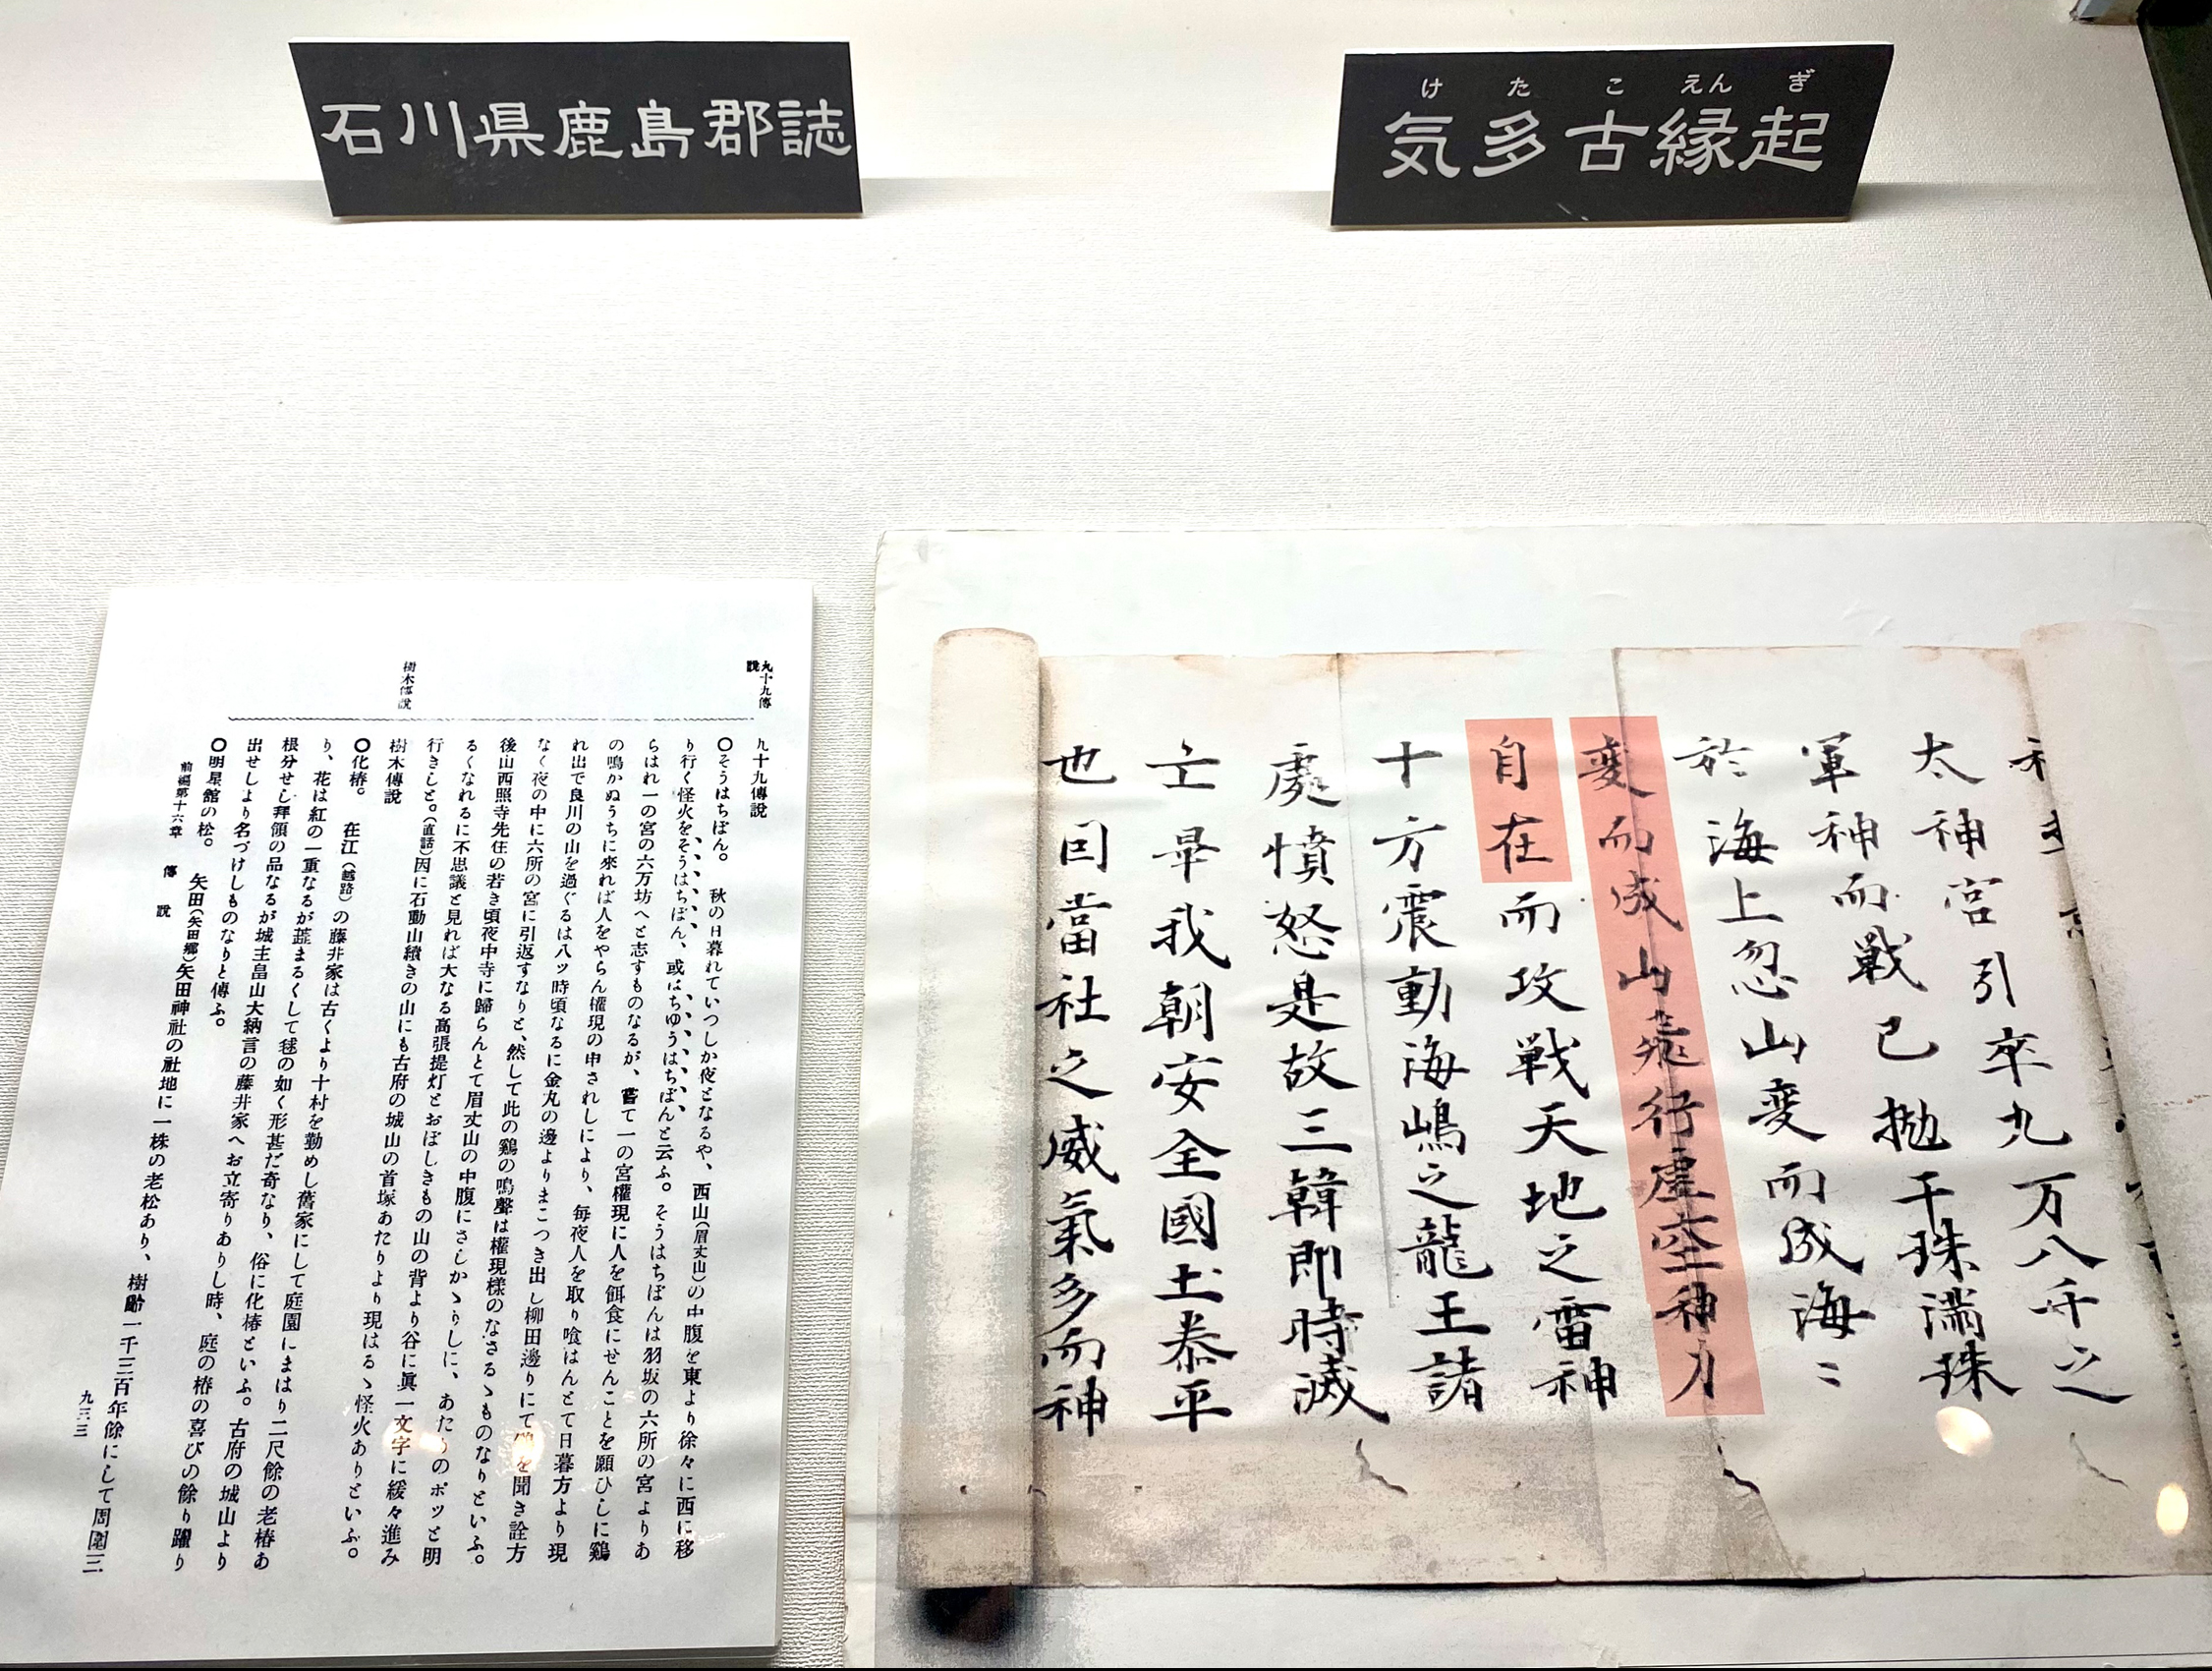 石川県鹿島郡誌
け た こ えん ぎ
気多古縁起
太神宮引卒九万八千之
軍神而戦已拋干珠満珠
於海上忽山変而成海〻
変而成山飛行虚空神力
自在而攻戦天地之雷神
十方震動海嶋之龍王諸
處憤怒是故三韓即時滅
亡畢我朝安全國土泰平
也因當社之威氣多而神
九十九傳説
樹木傳説
九十九傳説
〇そうはちぼん。 秋の日暮れていつしか夜となるや、西山(眉丈山)の中腹を東より徐々に西に移
り行く怪火をそうはちぼん、或はちゆうはちぼんと云ふ。そうはちぼんは羽坂の六所の宮よりあ
らはれ一の宮の六万坊へと志すものなるが、嘗て一の宮權現に人を餌食にせんことを願ひしに鷄
の鳴かぬうちに來れば人をやらん權現の申されしにより、毎夜人を取り喰はんとて日暮方より現
れ出で良川の山を過ぐるは八ッ時頃なるに金丸の邊よりまごつき出し柳田邊りにて鷄を聞き詮方
なく夜の中に六所の宮に引返すなりと、然して此の鷄の鳴聲は權現樣のなさるゝものなりといふ。
後山西照寺先住の若き頃夜中寺に歸らんとて眉丈山の中腹にさしかゝりしに、あたりのポッと明
るくなれるに不思議と見れば大なる高張提灯とおぼしきもの山の背より谷に眞一文字に緩々進み
行きしと。(直話)因に石動山續きの山にも古府の城山の首塚あたりより現はるゝ怪火ありといふ。
樹木傳説
〇化椿。 在江(越路)の藤井家は古くより十村を勤めし舊家にして庭園にまはり二尺餘の老椿あ
り、花は紅の一重なるが蕋まるくして毬の如く形甚だ奇なり、俗に化椿といふ。古府の城山より
根分せし拜領の品なるが城主畠山大納言の藤井家へお立寄りありし時、庭の椿の喜びの餘り躍り
出せしより名づけしものなりと傳ふ。
〇明星舘の松。 矢田(矢田郷)矢田神社の社地に一株の老松あり、樹齡一千三百年餘にして周圍三
前編第十六章 傳説
九三三